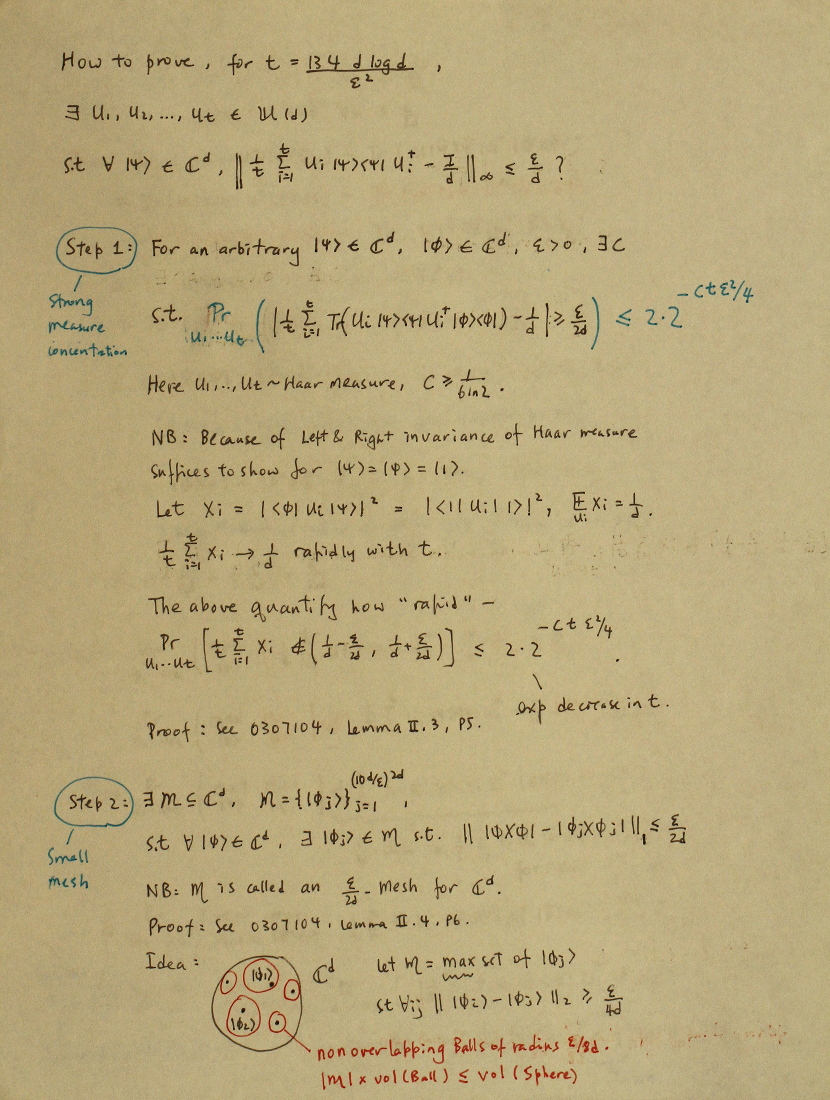 How to prove, for t = 134 d log d / ε² ,
∃ U₁, U₂, ..., Ut ∈ 𝕌(d)
s.t ∀ |ψ> ∈ ℂᵈ, ‖ 1/t Σ_{i=1}^{t} Ui |ψ><ψ| Ui† - I/d ‖∞ ≤ ε/d ?
Step 1: For an arbitrary |ψ> ∈ ℂᵈ, |φ> ∈ ℂᵈ, ε>0, ∃C
Strong measure concentration
s.t. Pr_{U₁...Ut} ( | 1/t Σ_{i=1}^{t} Tr(Ui |ψ><ψ| Ui† |φ><φ|) - 1/d | ≥ ε/2d ) ≤ 2·2^{-Ctε²/4}
Here U₁,.., Ut ~ Haar measure, C ≥ 1/(6 ln 2).
NB: Because of Left & Right invariance of Haar measure
suffices to show for |ψ> = |φ> = |1>.
Let Xi = |<φ| Ui |ψ>|² = |<1| Ui |1>|², 𝔼_{Ui} Xi = 1/d.
1/t Σ_{i=1}^{t} Xi → 1/d rapidly with t.
The above quantify how "rapid" -
Pr_{U₁...Ut} [ 1/t Σ_{i=1}^{t} Xi ∉ (1/d - ε/2d, 1/d + ε/2d) ] ≤ 2·2^{-Ctε²/4}.
exp decrease in t.
Proof: See 0307104, Lemma II.3, P5.
Step 2: ∃ M ⊆ ℂᵈ, M = {|φj>}_{j=1}^{(10d/ε)^{2d}} ,
Small mesh
s.t ∀ |φ> ∈ ℂᵈ, ∃ |φj> ∈ M s.t. ‖ |φ><φ| - |φj><φj| ‖₁ ≤ ε/2d
NB: M is called an ε/2d - mesh for ℂᵈ.
Proof: See 0307104, Lemma II.4, P6.
Idea: |φ₁> |φ₂> ℂᵈ let M = max set of |φj>
st ∀ij ‖ |φi> - |φj> ‖₂ ≥ ε/4d
nonoverlapping Balls of radius ε/8d.
|M| x vol(Ball) ≤ vol(Sphere)